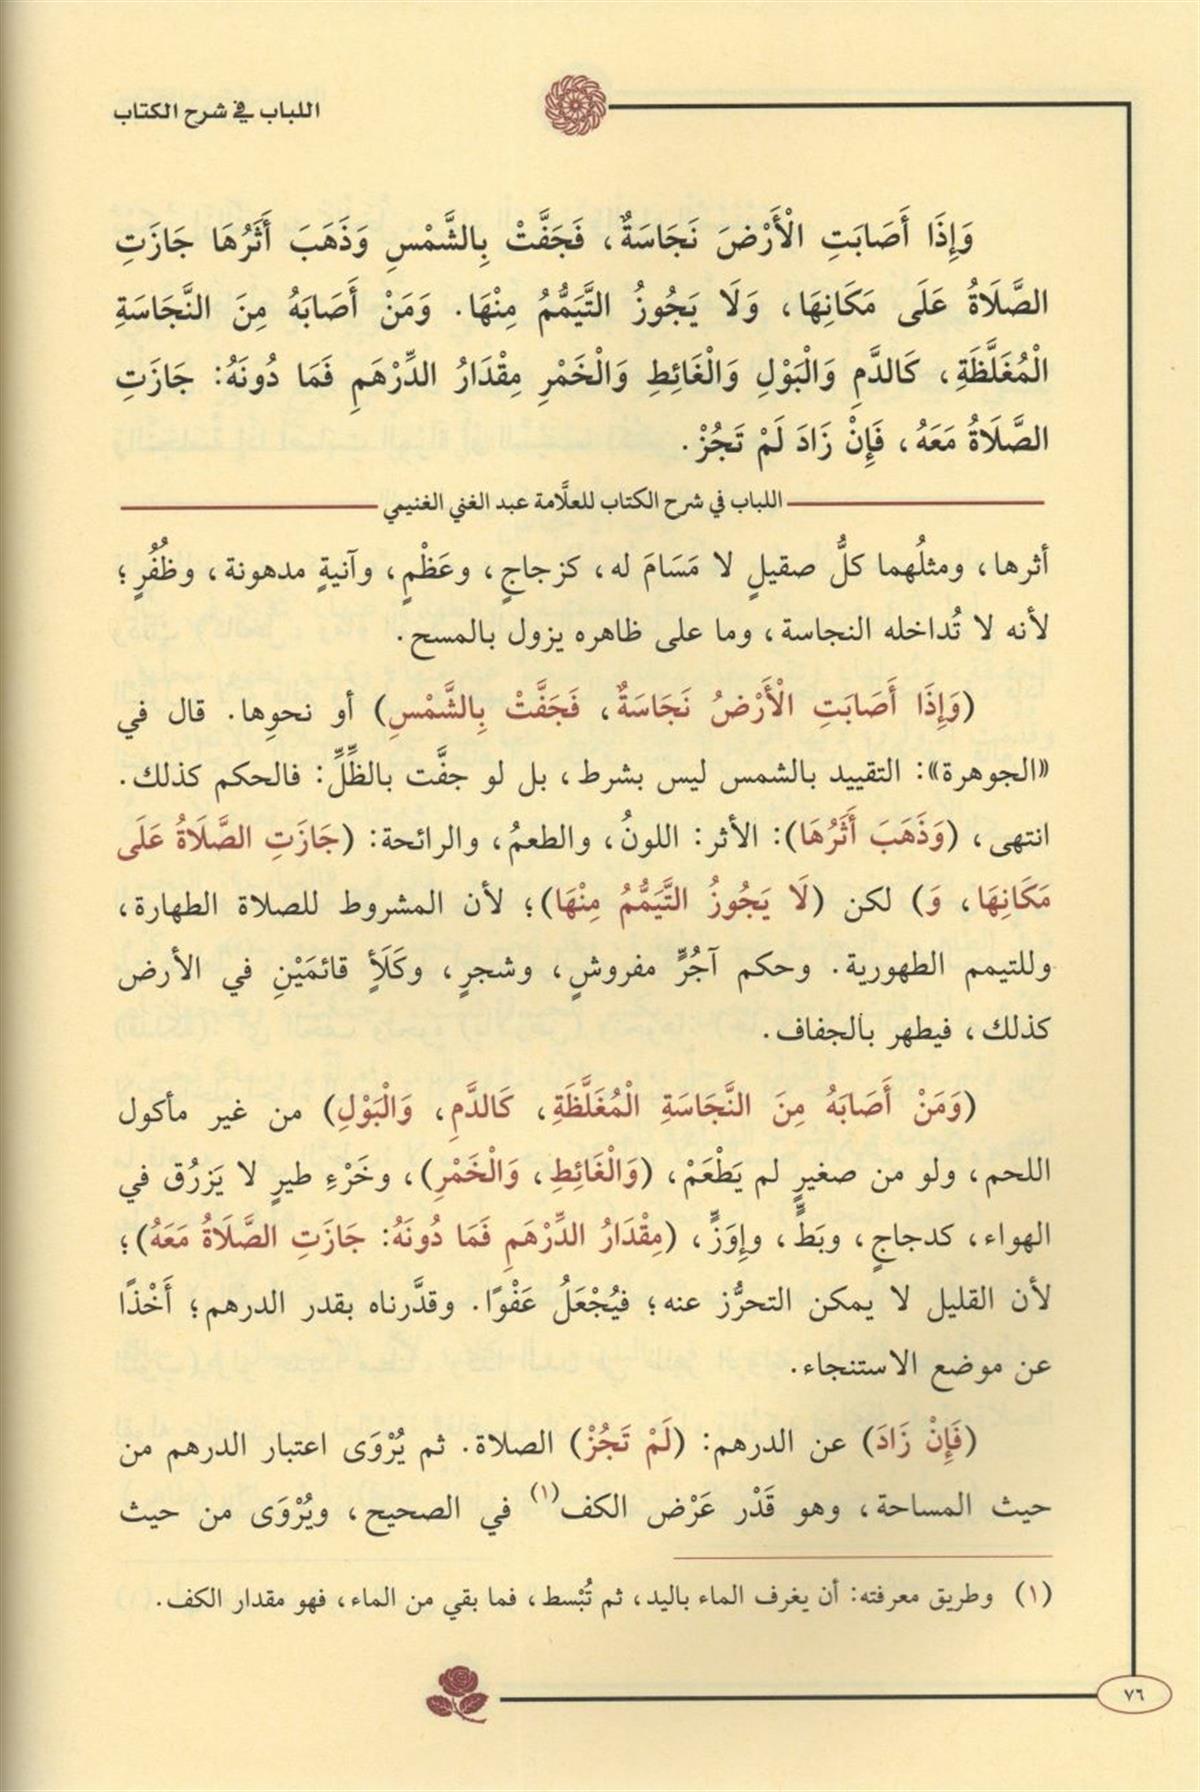 اللباب في شرح الكتاب
وَإِذَا أَصَابَتِ الْأَرْضَ نَجَاسَةٌ، فَجَفَّتْ بِالشَّمْسِ وَذَهَبَ أَثَرُهَا جَازَتِ
الصَّلَاةُ عَلَى مَكَانِهَا، وَلَا يَجُوزُ التَّيَمُّمُ مِنْهَا. وَمَنْ أَصَابَهُ مِنَ النَّجَاسَةِ
الْمُغَلَّظَةِ، كَالدَّمِ وَالْبَوْلِ وَالْغَائِطِ وَالْخَمْرِ مِقْدَارُ الدِّرْهَمِ فَمَا دُونَهُ: جَازَتِ
الصَّلَاةُ مَعَهُ، فَإِنْ زَادَ لَمْ تَجُزْ.
اللباب في شرح الكتاب للعلَّامة عبد الغني الغنيمي
أثرها، ومثلُهما كلُّ صقيلٍ لا مَسَامَ له، كزجاجٍ، وعَظْمٍ، وآنيةٍ مدهونة، وظُفُرٍ؛
لأنه لا تُداخله النجاسة، وما على ظاهره يزول بالمسح.
(وَإِذَا أَصَابَتِ الْأَرْضُ نَجَاسَةٌ، فَجَفَّتْ بِالشَّمْسِ) أو نحوِها. قال في
«الجوهرة»: التقييد بالشمس ليس بشرط، بل لو جفَّت بالظِّلِّ: فالحكم كذلك.
انتهى، (وَذَهَبَ أَثَرُهَا): الأثر: اللونُ، والطعمُ، والرائحة: (جَازَتِ الصَّلَاةُ عَلَى
مَكَانِهَا، وَ) لكن (لَا يَجُوزُ التَّيَمُّمُ مِنْهَا)؛ لأن المشروط للصلاة الطهارة،
وللتيمم الطهورية. وحكم آجُرٍّ مفروشٍ، وشجرٍ، وكَلَأٍ قائمَيْنِ في الأرض
كذلك، فيطهر بالجفاف.
(وَمَنْ أَصَابَهُ مِنَ النَّجَاسَةِ الْمُغَلَّظَةِ، كَالدَّمِ، وَالْبَوْلِ) من غير مأكول
اللحم، ولو من صغيرٍ لم يَطْعَمْ، (وَالْغَائِطِ، وَالْخَمْرِ)، وخَرْءِ طيرٍ لا يَزرُق في
الهواء، كدجاجٍ، وبَطٍّ، وإِوَزٍّ، (مِقْدَارُ الدِّرْهَمِ فَمَا دُونَهُ: جَازَتِ الصَّلَاةُ مَعَهُ)؛
لأن القليل لا يمكن التحرُّز عنه؛ فيُجْعَلُ عَفْوًا. وقدَّرناه بقدر الدرهم؛ أَخْذًا
عن موضع الاستنجاء.
(فَإِنْ زَادَ) عن الدرهم: (لَمْ تَجُزْ) الصلاة. ثم يُرْوَى اعتبار الدرهم من
حيث المساحة، وهو قَدْر عَرْض الكف(١) في الصحيح، ويُرْوَى من حيث
(١) وطريق معرفته: أن يغرف الماء باليد، ثم تُبْسط، فما بقي من الماء، فهو مقدار الكف.
٧٦